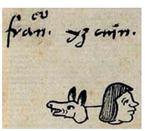 co
fran. yzcuin.